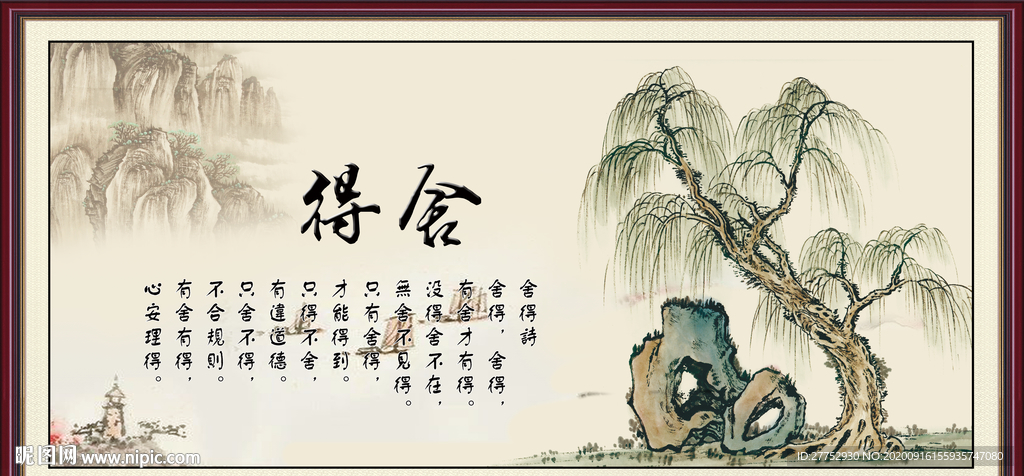 舍得
舍得詩
舍得，舍得，
有舍才有得。
没得舍不在，
無舍不見得。
只有舍得，
才能得到。
只得不舍，
有違道德。
只舍不得，
不合規則。
有舍有得，
心安理得。
昵图网 www.nipic.com
ID:27752930 NO:20200916155935747080